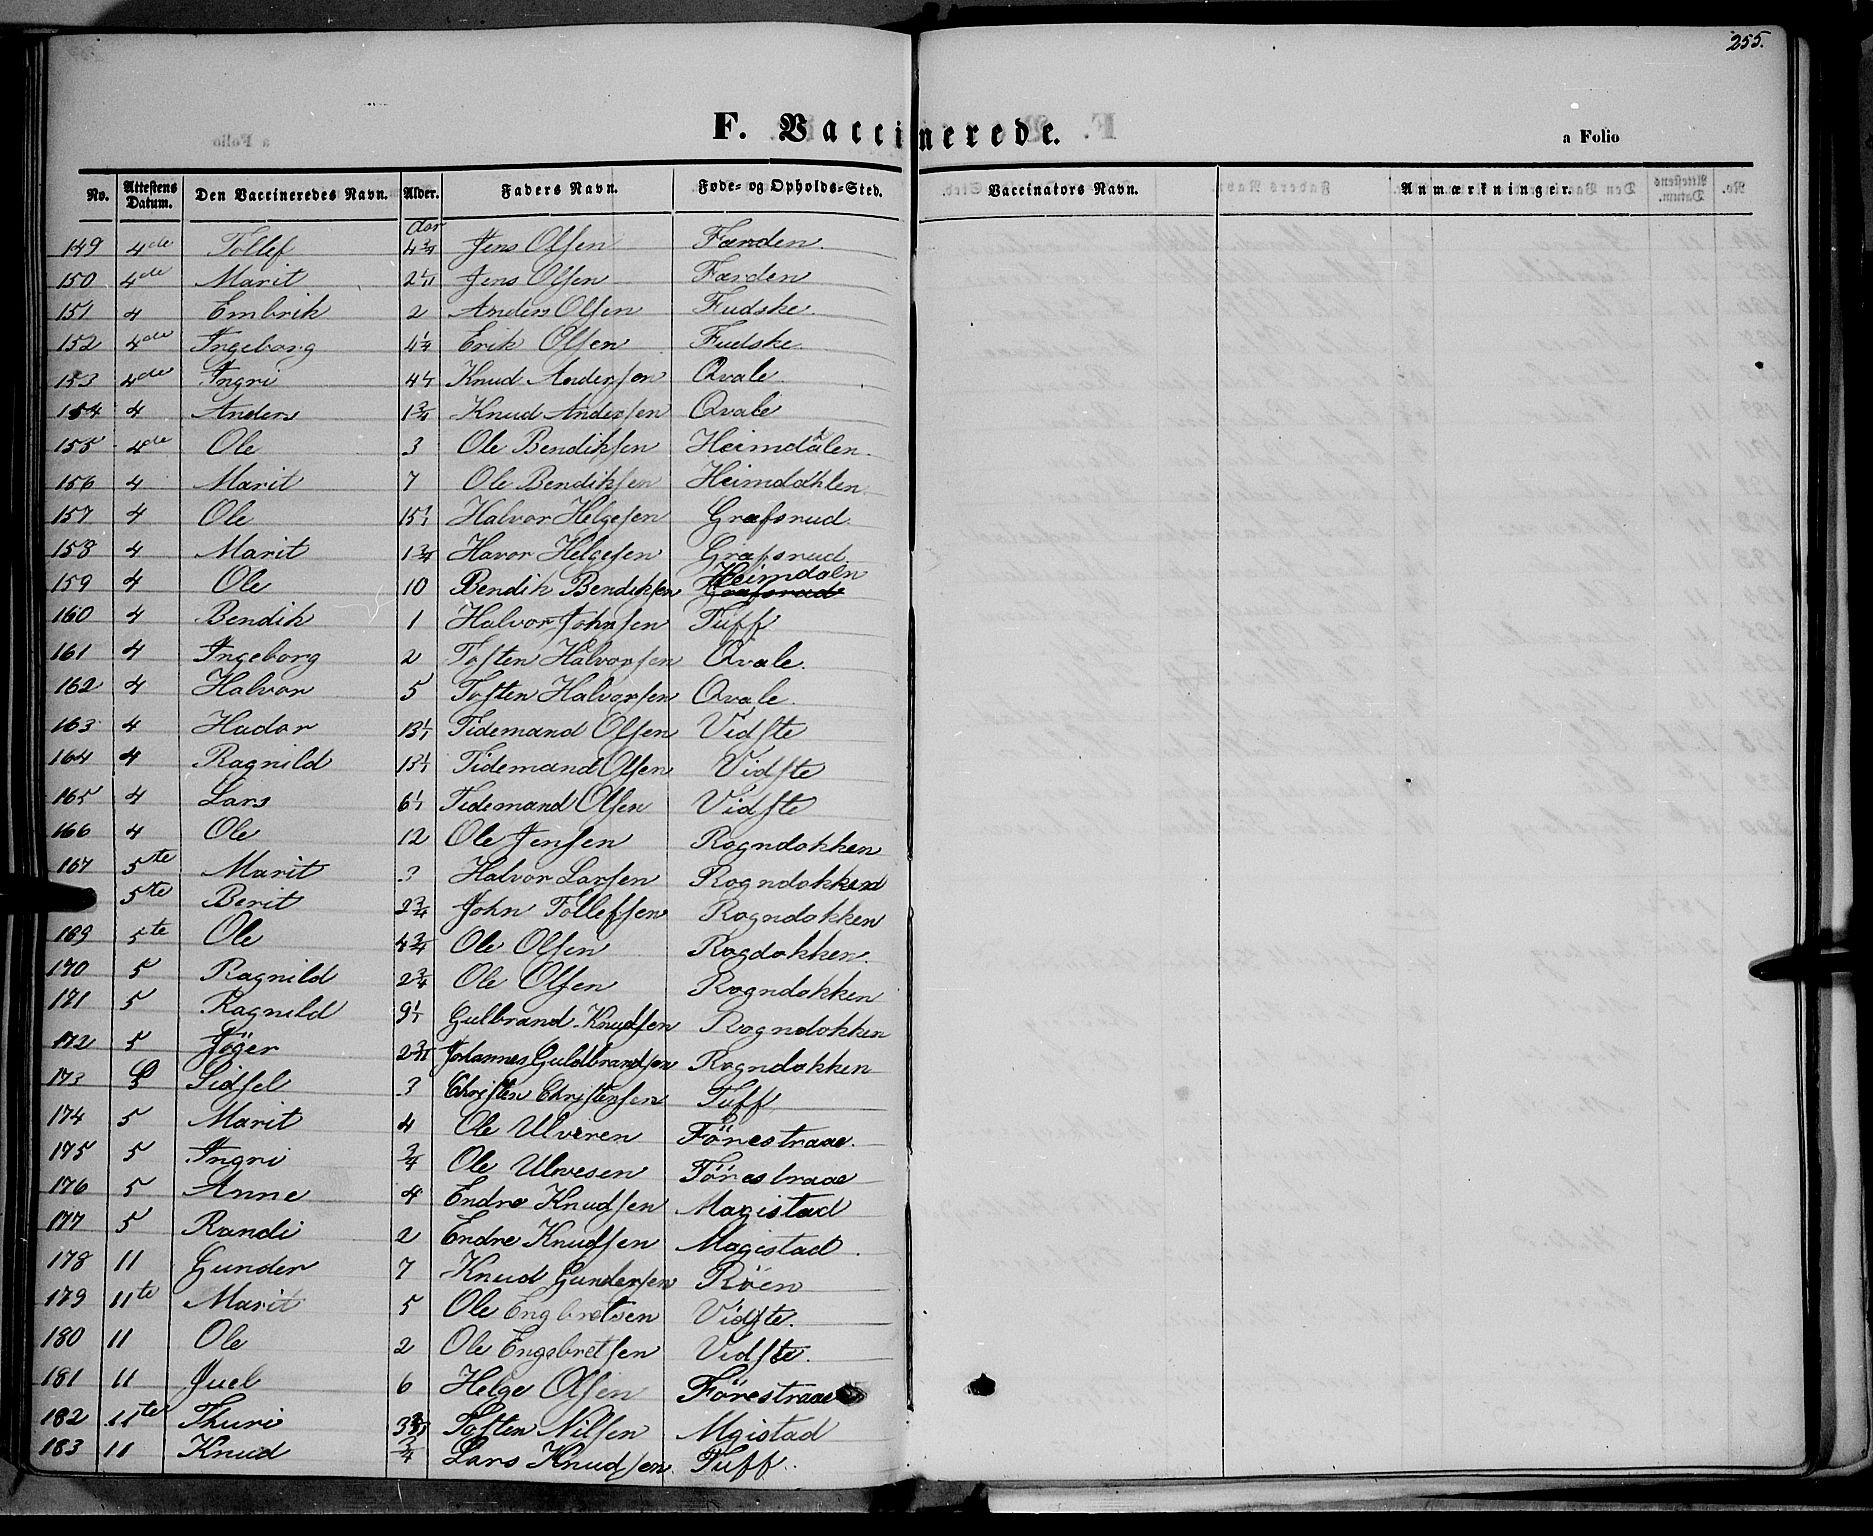 255.
F. Vaccinerede.
a Folio
No. Attestens Datum. Den Vaccineredes Navn. Alder. Faders Navn. Føde- og Opholds-Sted. Vaccinators Navn. Anmærkninger.
Aar
149 4de Tollef 4¾ Jens Olsen Færden.
150 4de Marit 2¼ Jens Olsen Færden
151 4 Embrik 2 Anders Olsen Fudske.
152 4de Ingeborg 4¼ Erik Olsen Fudske.
153 4de Ingri 4½ Knud Andersen Qvale.
154 4 Anders 1¾ Knud Andersen Qvale
155 4de Ole 3 Ole Bendiksen Heimdalen.
156 4 Marit 7 Ole Bendiksen Heimdahlen
157 4 Ole 15½ Halvor Helgesen Græfsrud.
158 4 Marit 1¾ Havor Helgesen Græfsrud
159 4 Ole 10 Bendik Bendiksen Heimdaln Græfsrud
160 4 Bendik 1 Halvor Johnsen Tuff
161 4 Ingeborg 2 Tosten Halvorsen Qvale.
162 4 Halvor 5 Tosten Halvorsen Qvale.
163 4 Hador 13½ Tidemand Olsen Vidste
164 4 Ragnild 13½ Tidemand Olsen Vidste
165 4 Lars 6½ Tidemand Olsen Vidste
166 4 Ole 12 Ole Jensen Rogndokken
167 5te Marit 3 Halvor Larsen Rogndokken
5te Berit 2¾ John Tollefsen Rogndokken
169 5te Ole 4¾ Ole Olsen Rogdokken.
170 5 Ragnild 2¾ Ole Olsen Rogndokken
171 5 Ragnild 9½ Gulbrand Knudsen Rogndokken
172 5 Jöger 2¾ Johannes Guldbrandsen Rogndokken
173 5 Sidsel 3 Christen Christensen Tuff
174 5 Marit 4 Ole Ulveren Förestraae.
175 5 Ingri ¾ Ole Ulvesen Förestraae
176 5 Anne 4 Endre Knudsen Magistad
177 5 Randi 2 Endre Knudsen Magistad.
178 11 Gunder 7 Knud Gundersen Röen
179 11te Marit 5 Ole Engbretsen Vidste.
180 11 Ole 2 Ole Engebretsen Vidste.
181 11 Juel 6 Helge Olsen Förestraae
182 11te Thuri 3¾ Tosten Nilsen Mgistad
183 11 Knud ¾ Lars Knudsen. Tuff.